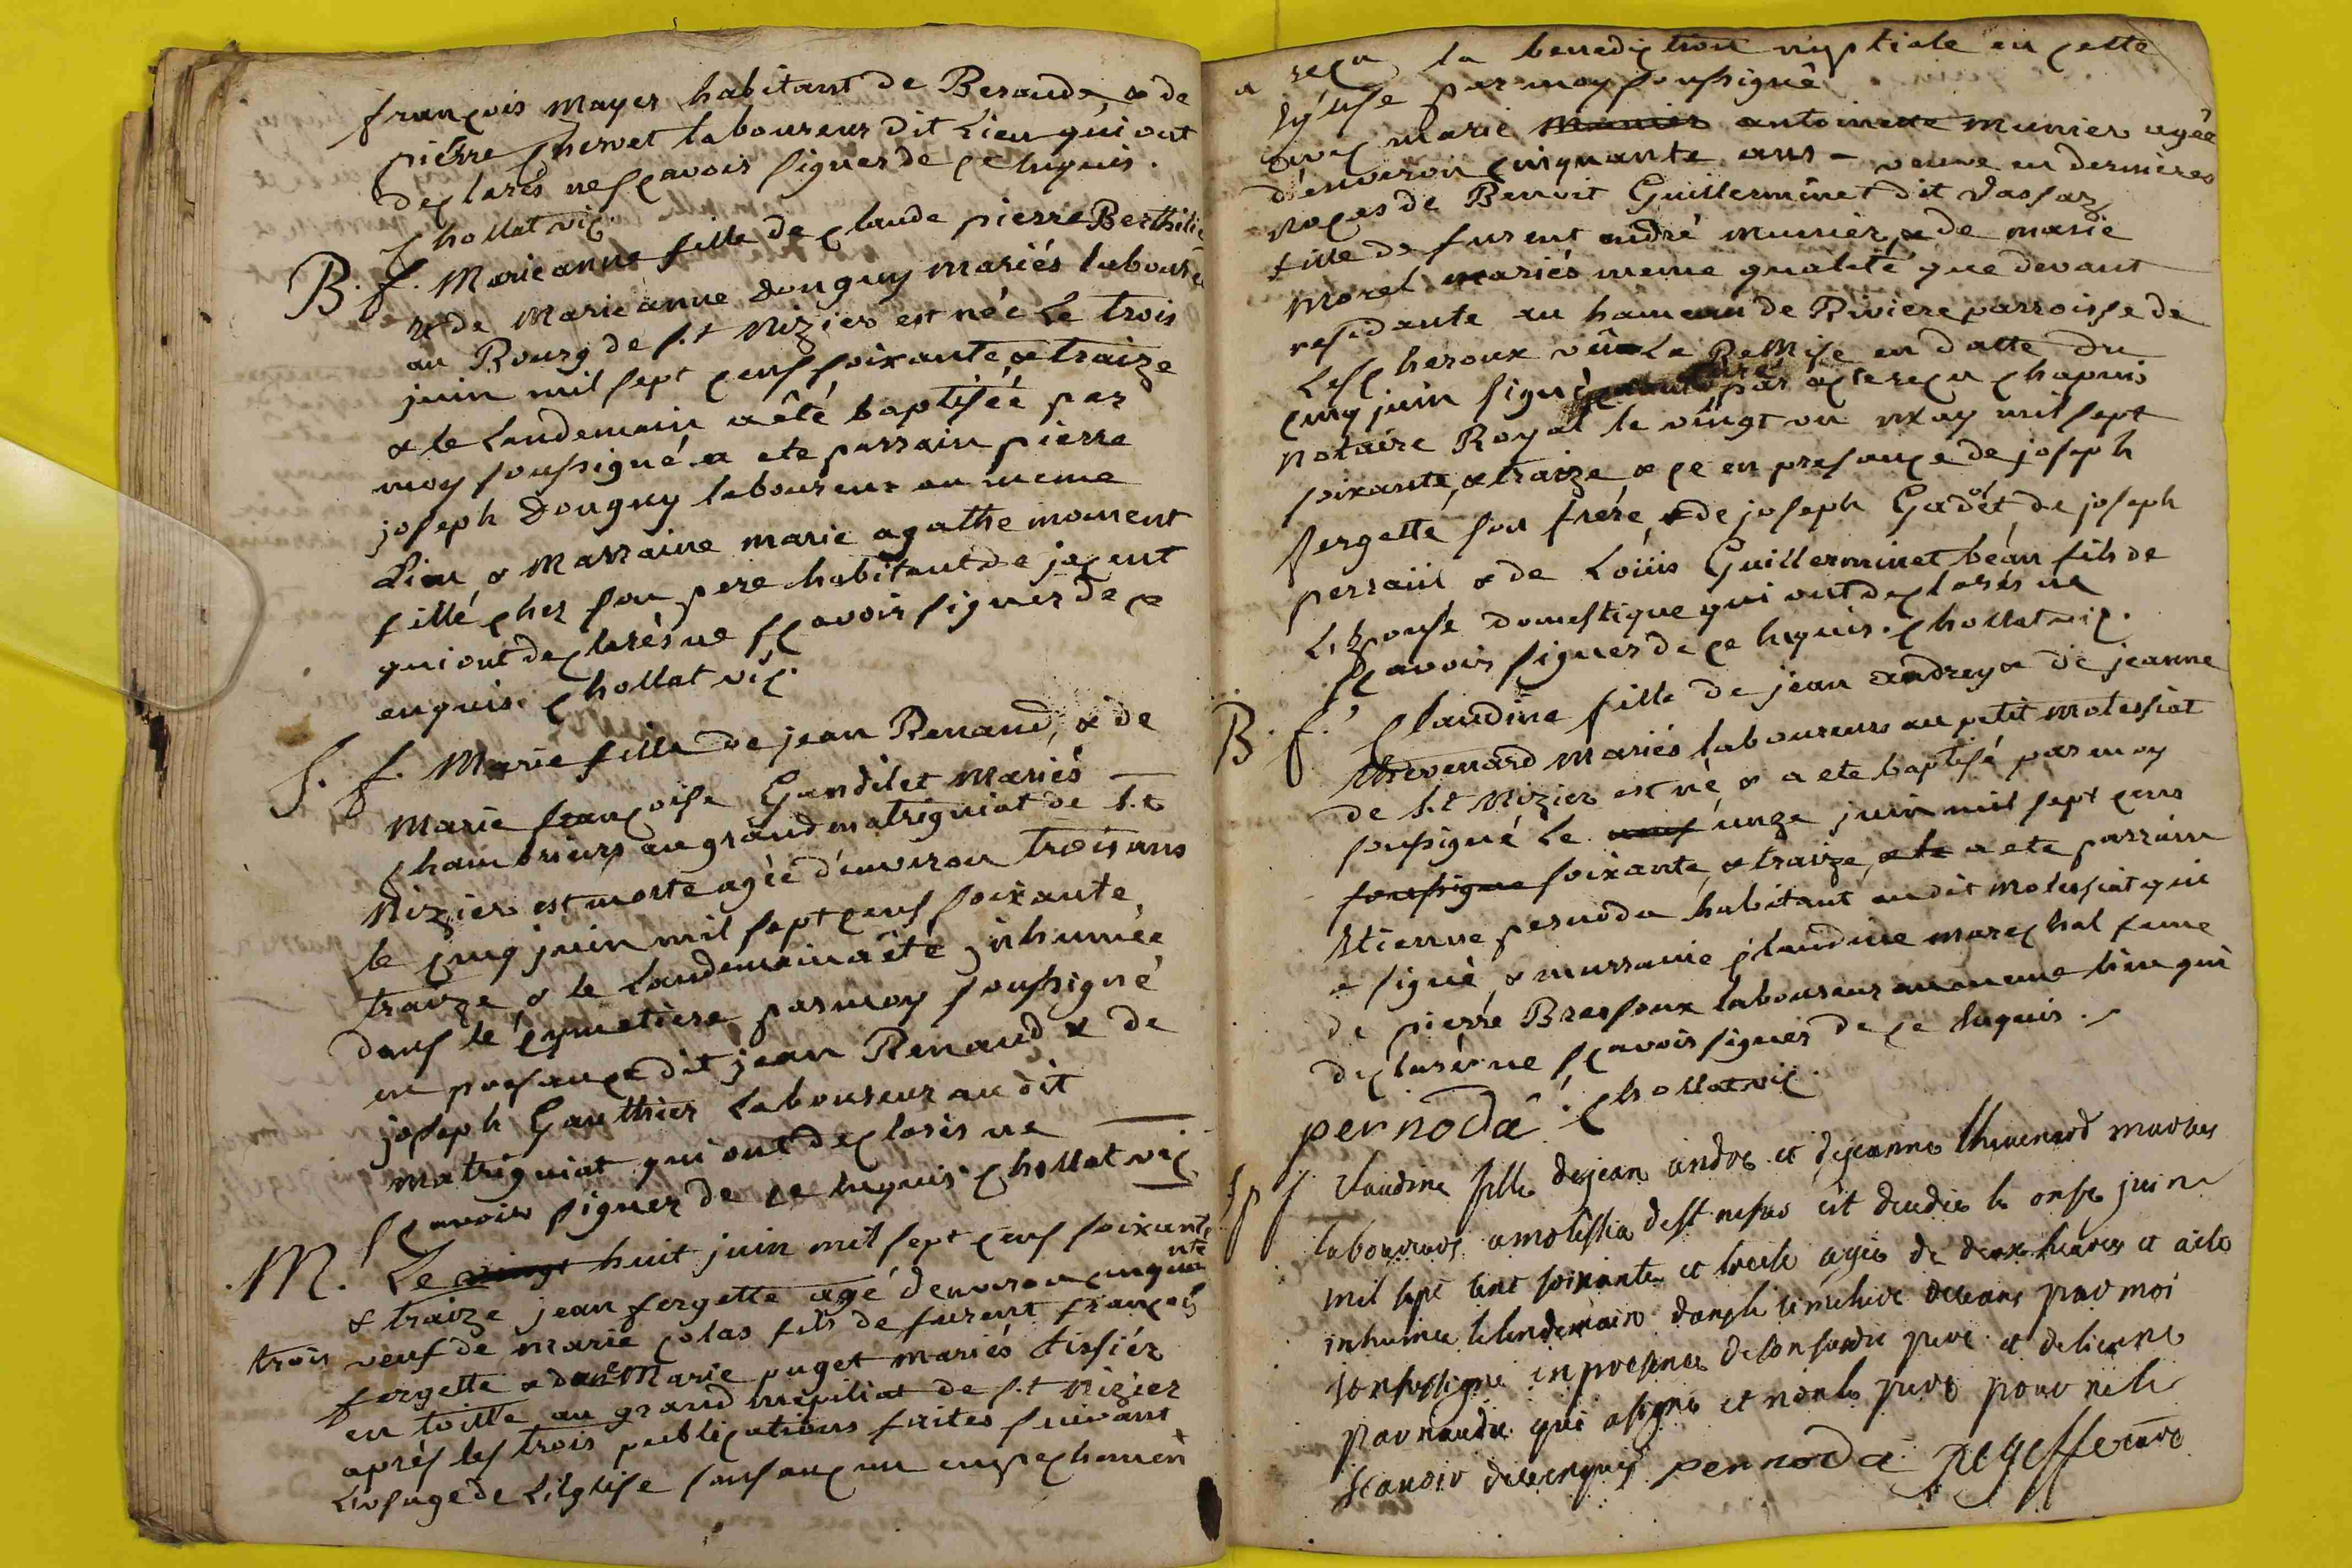 françois mayer habitant de Beraude, & de
pierre chervet laboureur dit Lieu qui ont
declarés ne scavoir signer de ce Enquis.
chollat vic.
B. f. Marie anne fille de claude pierre Berthili
& de Marie anne Donguy mariés laboure
au Bourg de s.t Nizier est née Le trois
juin mil sept cens soixante & traize
& le Landemain a êté baptisée par
moy soussigné a ete parrain pierre
joseph Donguy laboureur au meme
Lieu & Marraine marie agathe moment
fille chez son pere habitant de
qui ont declarés ne scavoir signer de ce
enquis. chollat vic.
S. f. Marie fille de jean Renaud, & de
Marie françoise Gandilet Mariés
au grand matrigniat de s.t
Nizier est morte agée d'environ trois ans
le cinq juin mil sept cens soixante
traize & le Landemain a êté inhumée
dans le cymetiere par moy soussigné
en presance dit jean Renaud & de
joseph Gauthier Laboureur au dit
matrigniat qui ont declarés ne
scavoir signer de ce enquis chollat vic
M. Le vingt huit juin mil sept cens soixante
& traize jean fergette agé denviron cinquante
trois veuf de marie colas fils de furent françois
fergette & de Marie puget mariés tissiér
en toille au grand mepiliat de s.t Nizier
après les trois publications faites suivant
L'usage de L'iglise sans aucun empechement
a reçu la benediction nuptiale en cette
Eglise par moy soussigné
avec marie munier antoinette munier agée
d'environ cinquante ans - veuve en dernieres
noces de Benoit Guillerminet dit Vassar
fille de furent andré munier, & de marie
Morel mariés meme qualité que devant
residante au hameau de Riviere parroisse de
Lescheroux vû La Remise en datte du
cinq juin signé curé par acte reçu chapuis
notaire Royal le vingt un may mil sept
soixante, & traize & ce en presance de joseph
fergette son frere & de joseph Gadot de joseph
perraül & de Loüis Guillerminet béau fils de
L'Epouse domestique qui ont declarés ne
scavoir signer de ce Enquis. chollat vic.
B. f. claudine fille de jean andrey & de jeanne
thevenard mariés laboureurs au petit molessiat
de s.t Nizier est né & a ete baptisé par moy
soussigné Le neuf unze juin mil sept cens
soussigne soixante, & traize, & le a ete parrain
Etienne pernoda habitant au dit molessiat qui
a signé, & marraine claudine marechal fame
de pierre Bressoux laboureur au meme lieu qui
declaré ne scavoir signer de ce Enquis.
pernoda chollat vic.
Sp f Claudine fille de jean andre et de jeanne thevenard maries
laboureurs a molissia de st nisier est decedée le onse juin
mil sept cent soixante et treise agée de deux heures et a ete
inhumée le lendemain dans le cimetiere de ceans par moi
soussigné en presence de son susdit pere et detienne
parnaudu qui a signé et non le pere pour ne le
scavoir de ce enquis pernoda curé